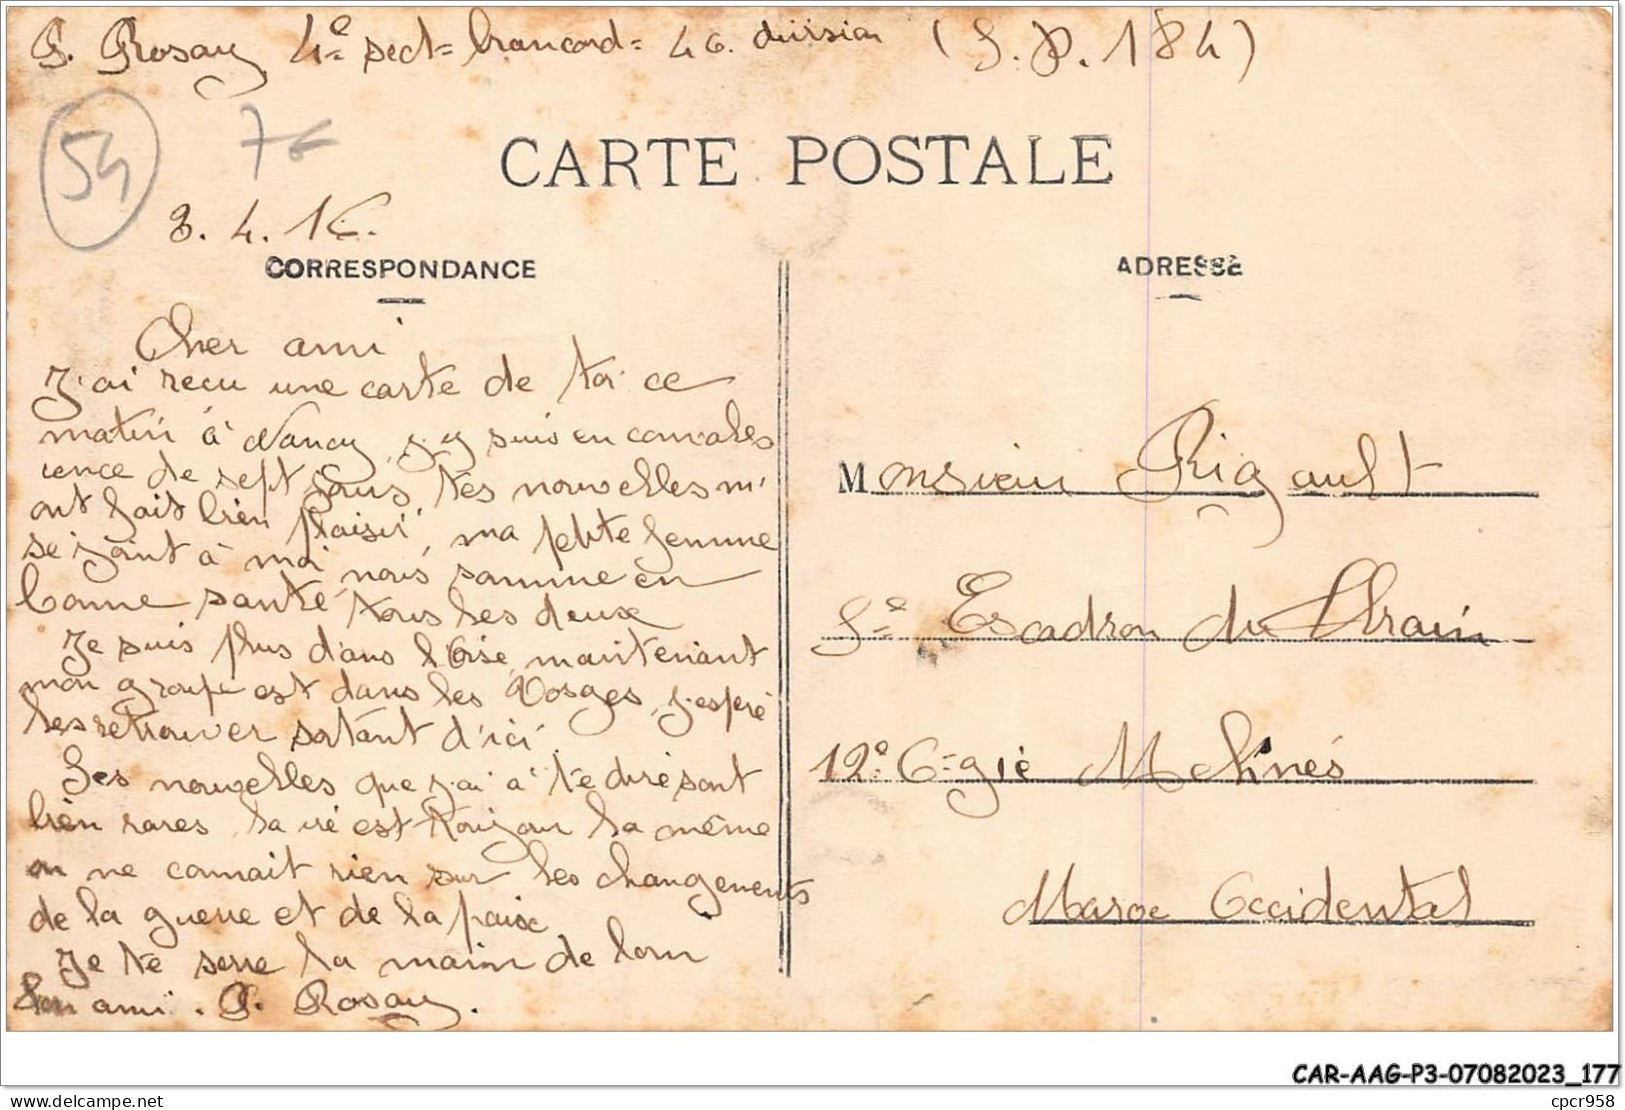 P. Rosay 4e sect= brancard= 46. division (S.P. 184)
54
7€
CARTE POSTALE
8. 4. 16.
CORRESPONDANCE
ADRESSE
Cher ami
J'ai reçu une carte de toi ce
matin à Nancy, j'y suis en convales
cence de sept jours, tes nouvelles m'
ont fait bien plaisir, ma petite femme
se joint à moi nous somme en
bonne santé tous les deux
Je suis plus dans l'Oise, maintenant
mon groupe est dans les Vosges, j'espère
les retrouver sortant d'ici.
Les nouvelles que j'ai à te dire sont
bien rares, la vie est toujour la même
on ne connait rien sur les changements
de la guerre et de la paix
Je te serre la main de loin
Ton ami. P. Rosay.
Monsieur Rigault
5e Escadron du Train
12e Cgie Meknès
Maroc Occidental
CAR-AAG-P3-07082023_177
delcampe.net
cpcr958